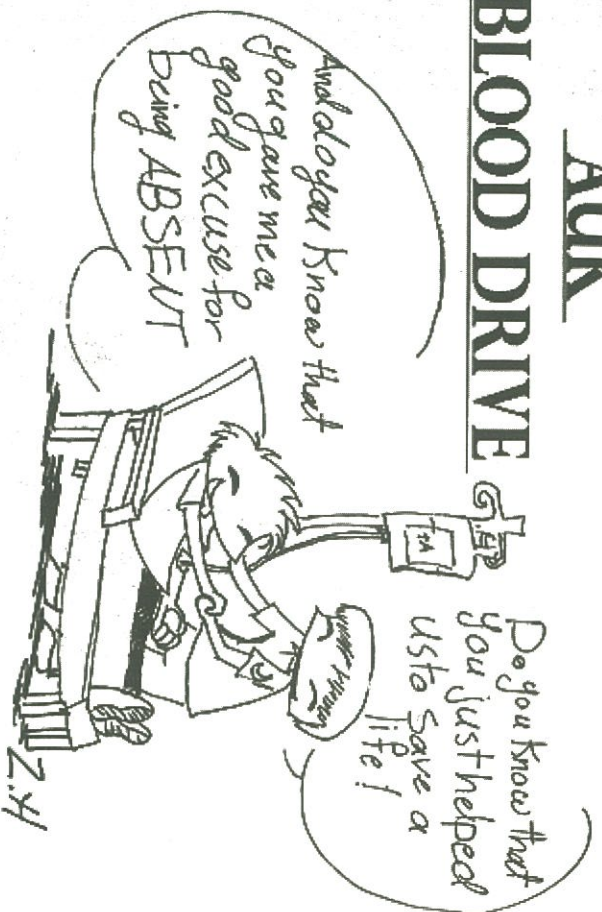 AUK
BLOOD DRIVE
Do you know that
you just helped
us to save a
life!
And do you know that
you gave me a
good excuse for
being ABSENT
A+
Z.H